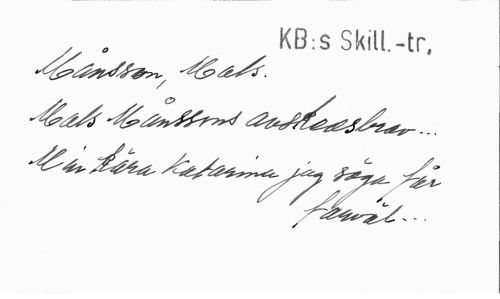 KB:s Skill.-tr.
Månsson, Mats.
Mats Månssons avskedsbrev...
Min kära Katarina jag säga får
farväl...